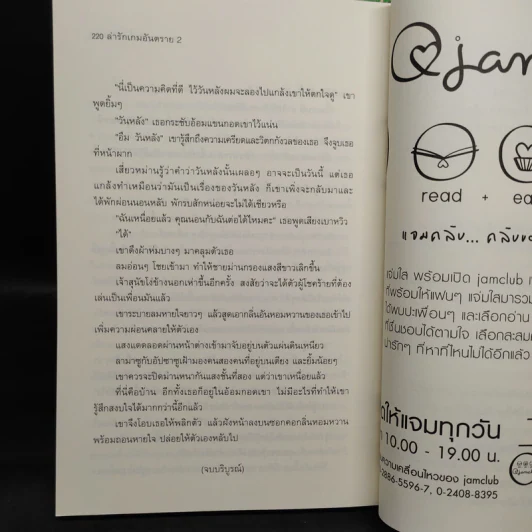 220 ล่ารักเกมอันตราย 2
"นี่เป็นความคิดที่ดี ไว้วันหลังผมจะลองไปแกล้งเขาให้ตกใจดู" เขา
พูดยิ้มๆ
"วันหลัง" เธอกระชับอ้อมแขนกอดเขาไว้แน่น
"อืม วันหลัง" เขารู้สึกถึงความเครียดและวิตกกังวลของเธอ จึงจูบเธอ
ที่หน้าผาก
เสี่ยวหม่านรู้ว่าคำว่าวันหลังนั้นเผลอๆ อาจจะเป็นวันนี้ แต่เธอ
แกล้งทำเหมือนว่ามันเป็นเรื่องของวันหลัง ก็เขาเพิ่งจะกลับมาและ
ได้พักผ่อนนอนหลับ พักรบสักหน่อยจะไม่ได้เชียวหรือ
"ฉันเหนื่อยแล้ว คุณนอนกับฉันต่อได้ไหมคะ" เธอพูดเสียงเบาหวิว
"ได้"
เขาดึงผ้าห่มบางๆ มาคลุมตัวเธอ
ลมอ่อนๆ โชยเข้ามา ทำให้ชายม่านกรองแสงสีขาวเลิกขึ้น
เจ้าสุนัขโง่ข้างนอกเห่าขึ้นอีกครั้ง สงสัยว่าจะได้ตัวผู้โชคร้ายที่ต้อง
เล่นเป็นเพื่อนมันแล้ว
เขาระบายลมหายใจยาวๆ แล้วสูดเอากลิ่นอันหอมหวานของเธอเข้าไป
เพิ่มความผ่อนคลายให้ตัวเอง
แสงแดดลอดผ่านหน้าต่างเข้ามาจับอยู่บนตัวแผ่นดินเหนียว
ลามาซูกับอัปซาซูเฝ้ามองคนสองคนที่อยู่บนเตียง และยิ้มน้อยๆ
เขาควรจะปิดม่านหนากันแสงชั้นที่สอง แต่ว่าเขาเหนื่อยแล้ว
ที่นี่คือบ้าน อีกทั้งเธอก็อยู่ในอ้อมกอดเขา ไม่มีอะไรที่ทำให้เขา
รู้สึกสงบใจได้มากกว่านี้อีกแล้ว
เขาจึงโอบเธอให้พลิกตัว แล้วฝังหน้าลงบนซอกคอกลิ่นหอมหวาน
พร้อมถอนหายใจ ปล่อยให้ตัวเองหลับไป
(จบบริบูรณ์)
@jam
read + ea
แจมคลับ...
แจ่มใส พร้อมเปิด jamclub
ที่พร้อมให้แฟนๆ แจ่มใสมารวม
ได้พบปะเพื่อนๆ และเลือกอ่าน
ที่ชื่นชอบได้ตามใจ เลือกสะสม
น่ารักๆ ที่หาที่ไหนไม่ได้อีกแล้ว
ให้แจมทุกวัน
10.00 - 19.00 น.
ความเคลื่อนไหวของ jamclub
-2886-5596-7, 0-2408-8395